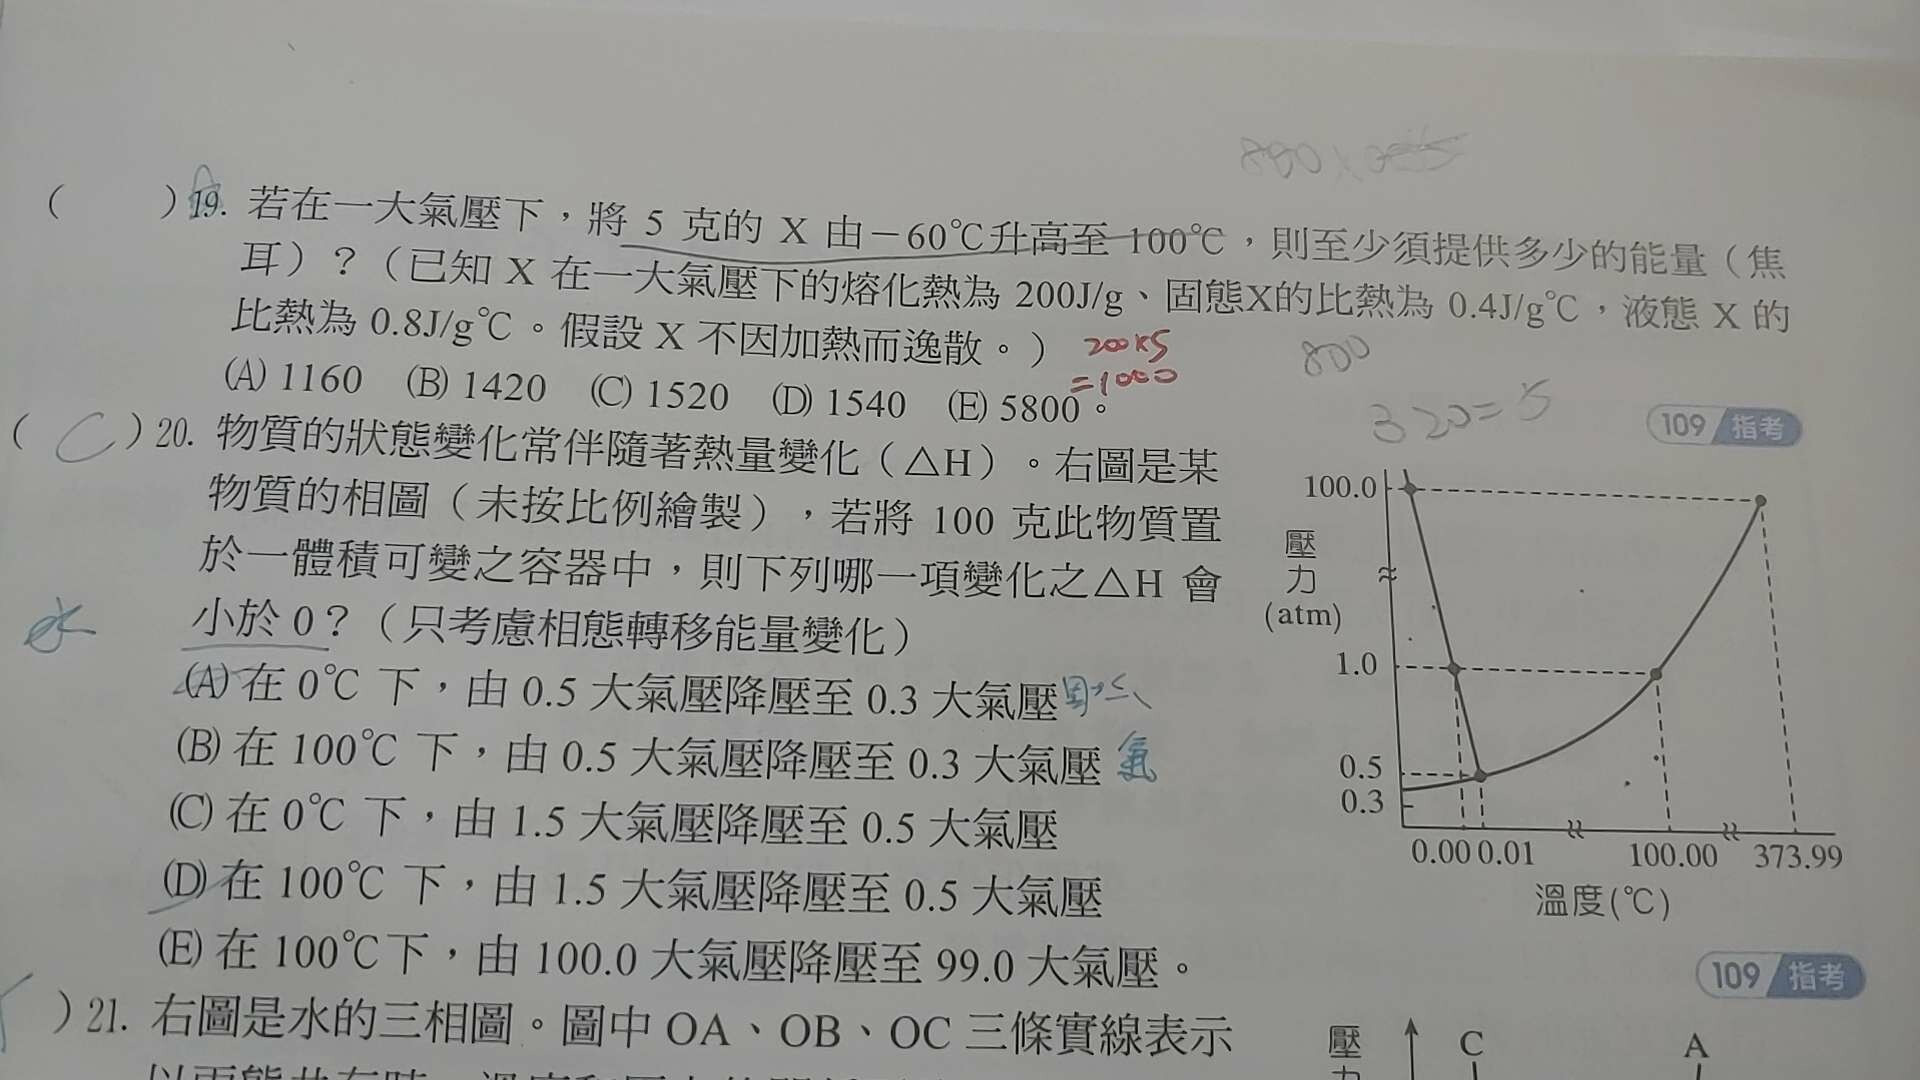 ( )19. 若在一大氣壓下，將 5 克的 X 由－60℃升高至 100℃，則至少須提供多少的能量（焦
耳）？（已知 X 在一大氣壓下的熔化熱為 200J/g、固態X的比熱為 0.4J/g℃，液態 X 的
比熱為 0.8J/g℃。假設 X 不因加熱而逸散。）
200×5
=1000
800
(A) 1160 (B) 1420 (C) 1520 (D) 1540 (E) 5800。
320=5
109 指考
( C )20. 物質的狀態變化常伴隨著熱量變化（△H）。右圖是某
物質的相圖（未按比例繪製），若將 100 克此物質置
於一體積可變之容器中，則下列哪一項變化之△H 會
小於 0？（只考慮相態轉移能量變化）
水
(A) 在 0℃ 下，由 0.5 大氣壓降壓至 0.3 大氣壓
(B) 在 100℃ 下，由 0.5 大氣壓降壓至 0.3 大氣壓 氣
(C) 在 0℃ 下，由 1.5 大氣壓降壓至 0.5 大氣壓
(D) 在 100℃ 下，由 1.5 大氣壓降壓至 0.5 大氣壓
(E) 在 100℃下，由 100.0 大氣壓降壓至 99.0 大氣壓。
100.0
壓
力
(atm)
1.0
0.5
0.3
0.00 0.01 100.00 373.99
溫度(℃)
109 指考
)21. 右圖是水的三相圖。圖中 OA、OB、OC 三條實線表示
壓 C A